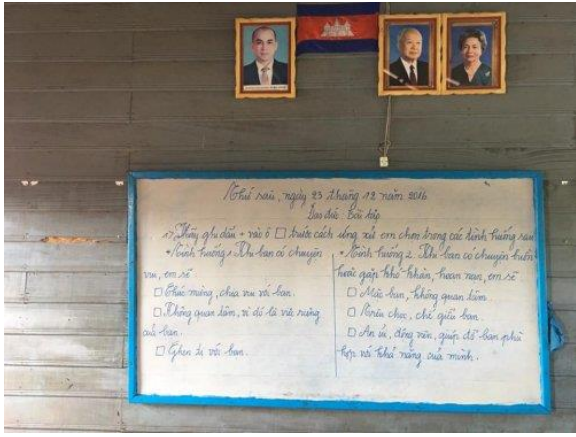 Thứ sáu, ngày 23 tháng 12 năm 2016
Đạo đức Bài tập
1) Hãy ghi dấu + vào ô □ trước cách ứng xử em chọn trong các tình huống sau
* Tình huống 1: Khi bạn có chuyện
vui, em sẽ
□ Chúc mừng, chia vui với bạn.
□ Không quan tâm, vì đó là việc riêng
của bạn.
□ Ghen tị với bạn.
* Tình huống 2: Khi bạn có chuyện buồn
hoặc gặp khó khăn, hoạn nạn, em sẽ
□ Mặc bạn, không quan tâm
□ Trêu chọc, chế giễu bạn.
□ An ủi, động viên, giúp đỡ bạn phù
hợp với khả năng của mình.